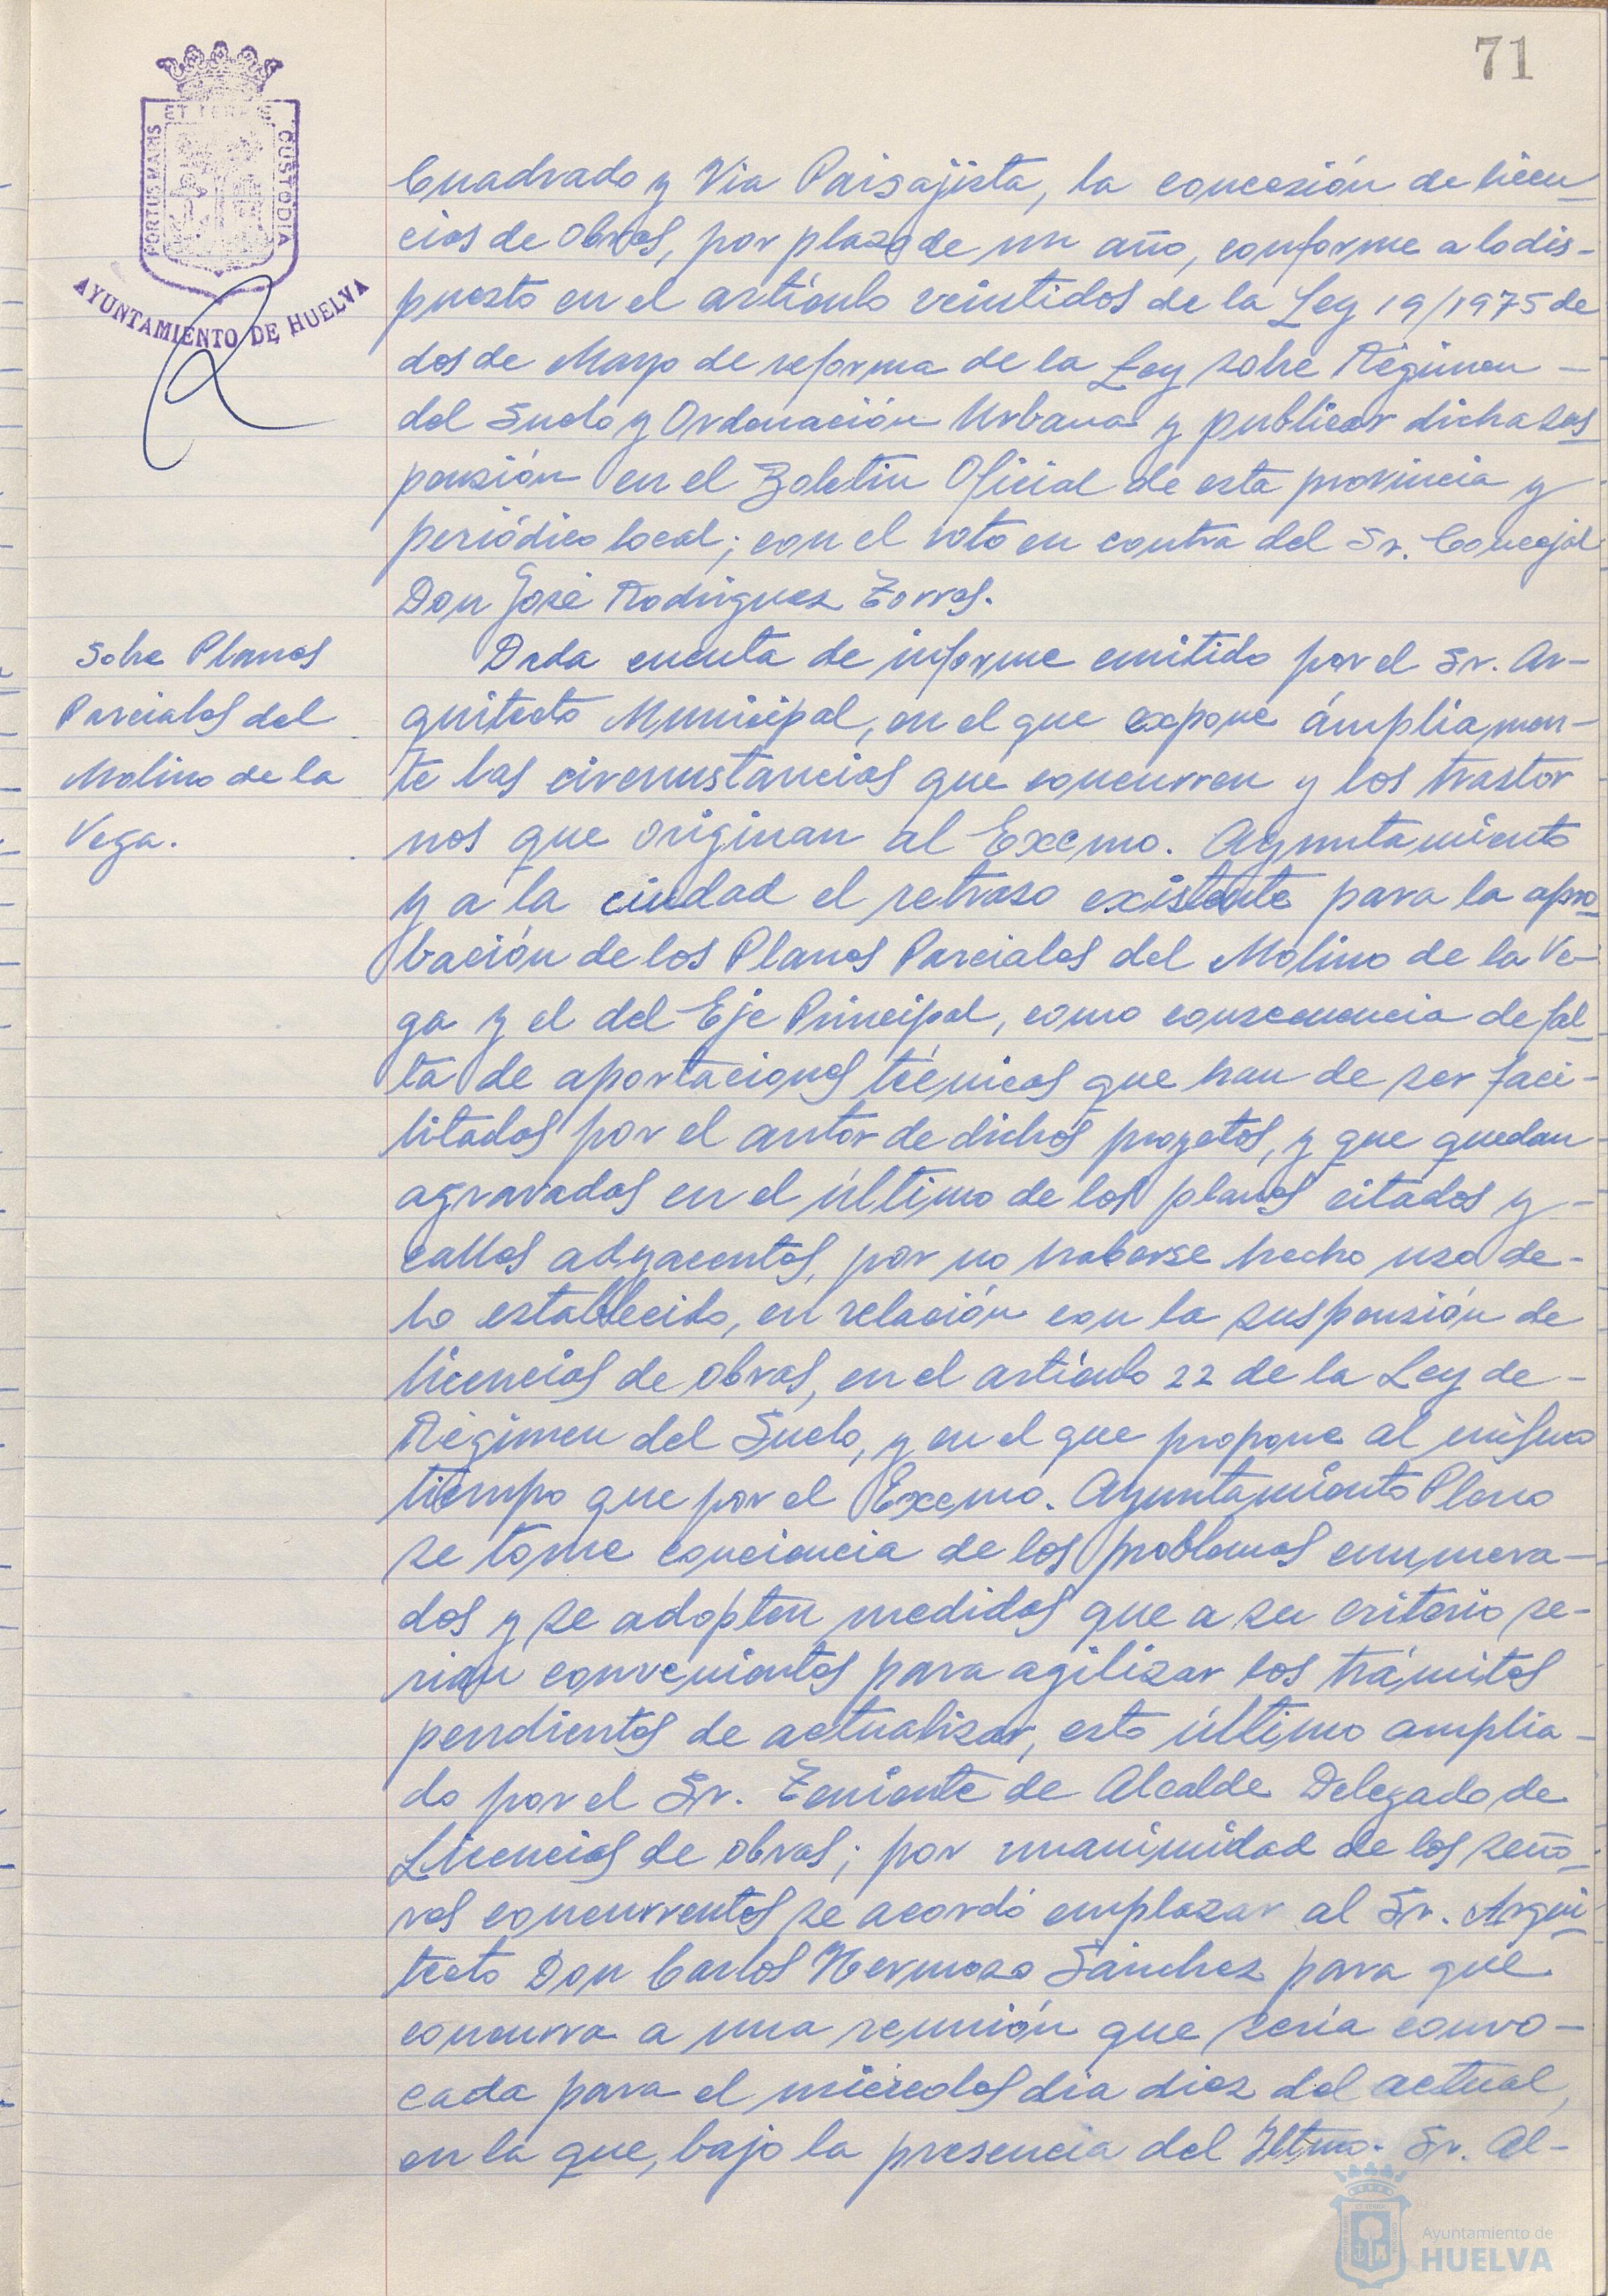 71
ET TERRE
PORTUS MARIS
CUSTODIA
AYUNTAMIENTO DE HUELVA
Cuadrado y Via Paisajista, la concesión de licen
cias de obras, por plazo de un año, conforme a lo dis-
puesto en el artículo veintidos de la Ley 19/1975 de
dos de Mayo de reforma de la Ley sobre Régimen -
del Suelo y Ordenación Urbana y publicar dicha sus
pensión en el Boletin Oficial de esta provincia y
periódico local; con el voto en contra del Sr. Concejal
Don José Rodriguez Torres.
Sobre Planes
Parciales del
Molino de la
Vega.
Dada cuenta de informe emitido por el Sr. Ar-
quitecto Municipal, en el que expone ámpliamen-
te las circunstancias que concurren y los trastor
nos que originan al Excmo. Ayuntamiento
y a la ciudad el retraso existente para la apro
bación de los Planes Parciales del Molino de la Ve-
ga y el del Eje Principal, como consecuencia de fal
ta de aportaciones técnicas que han de ser faci-
litadas por el autor de dichos proyetos, y que quedan
agravadas en el último de los planes citados y -
calles adyacentes, por no haberse hecho uso de-
lo establecido, en relación con la suspensión de
licencias de obras, en el artículo 22 de la Ley de -
Régimen del Suelo, y en el que propone al mismo
tiempo que por el Excmo. Ayuntamiento Pleno
se tome conciencia de los problemas enumera-
dos y se adopten medidas que a su criterio se-
rian convenientes para agilizar los trámites
pendientes de actualizar, esto último amplia-
do por el Sr. Teniente de Alcalde Delegado de
Licencias de obras; por unanimidad de los seño-
res concurrentes se acordó emplazar al Sr. Arqui
tecto Don Carlos Hermoso Sánchez para que
concurra a una reunión que sería convo-
cada para el miércoles dia diez del actual,
en la que, bajo la presencia del Iltmo. Sr. Al-
Ayuntamiento de
HUELVA